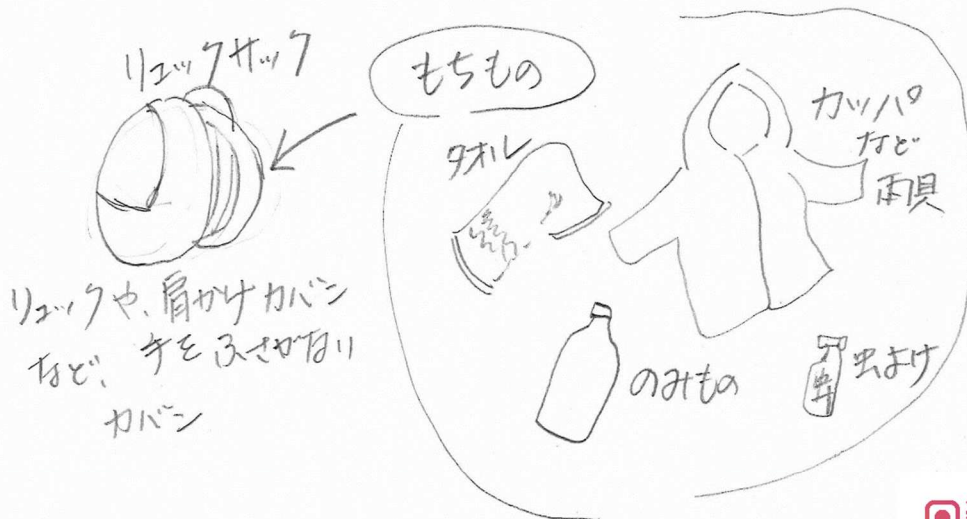 リュックサック
リュックや、肩かけカバン
など、手をふさがない
カバン
もちもの
タオル
カッパ
など
雨具
のみもの
虫よけ